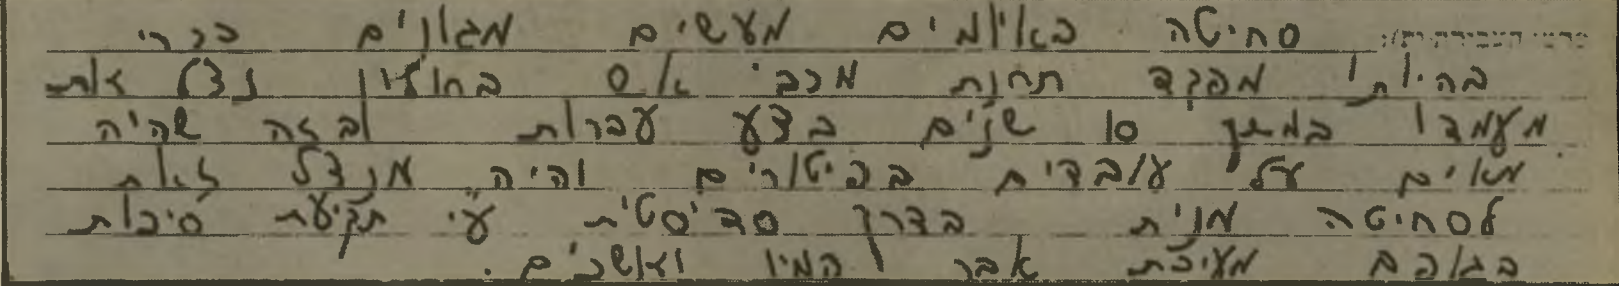 סחיטה באיומים מעשים מגונים בכרי
בהיותו מפקד תחנת מכבי אש בחולון נצל את
מעמדו במשך 10 שנים בצע עברות ובזה שהיה
מאיים על עובדים בפיטורים והיה מנצל זאת
לסחיטה מינית בדרך סדיסטית ע״י תקיעת סיכות
בגופם מעיכת אבר המין ואשכים.